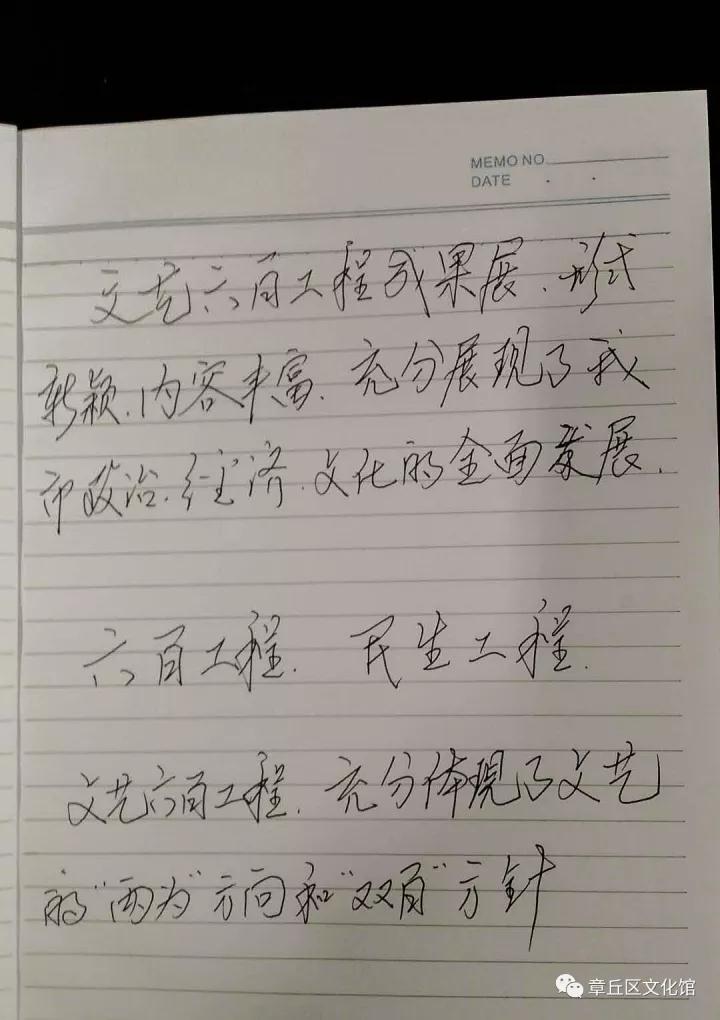 MEMO NO.
DATE . .
文艺六百工程成果展、形式
新颖、内容丰富、充分展现了我
市政治、经济、文化的全面发展、
六百工程、民生工程、
文艺六百工程、充分体现了文艺
的“两为”方向和“双百”方针
章丘区文化馆